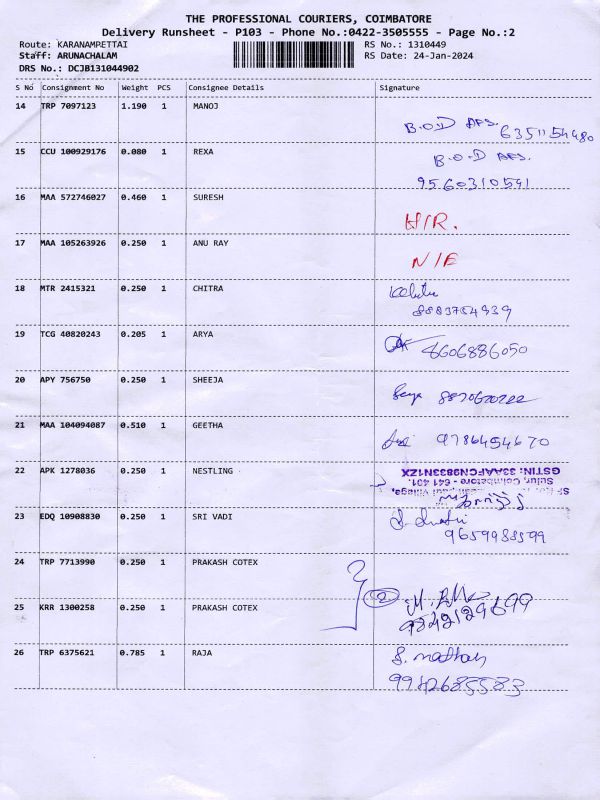 THE PROFESSIONAL COURIERS, COIMBATORE
Delivery Runsheet - P103 - Phone No.:0422-3505555 - Page No.:2
Route: KARANAMPETTAI RS No.: 1310449
Staff: ARUNACHALAM RS Date: 24-Jan-2024
DRS No.: DCJB131044902
S No Consignment No Weight PCS Consignee Details Signature
14 TRP 7097123 1.190 1 MANOJ
B.O.D AFS. 6351154480
15 CCU 100929176 0.080 1 REXA
B.O.D AFS.
9560310591
16 MAA 572746027 0.460 1 SURESH
H/R.
17 MAA 105263926 0.250 1 ANU RAY
N/E
18 MTR 2415321 0.250 1 CHITRA
8883754939
19 TCG 40820243 0.205 1 ARYA
8606886050
20 APY 756750 0.250 1 SHEEJA
8870670222
21 MAA 104094087 0.510 1 GEETHA
9786454670
22 APK 1278036 0.250 1 NESTLING
GSTIN: 33AAFCN9833N1ZX
Sulur, Coimbatore - 641 401.
Village,
23 EDQ 10908830 0.250 1 SRI VADI
9659988599
24 TRP 7713990 0.250 1 PRAKASH COTEX
2
25 KRR 1300258 0.250 1 PRAKASH COTEX
9842129699
26 TRP 6375621 0.785 1 RAJA
S. mathan
9942685583